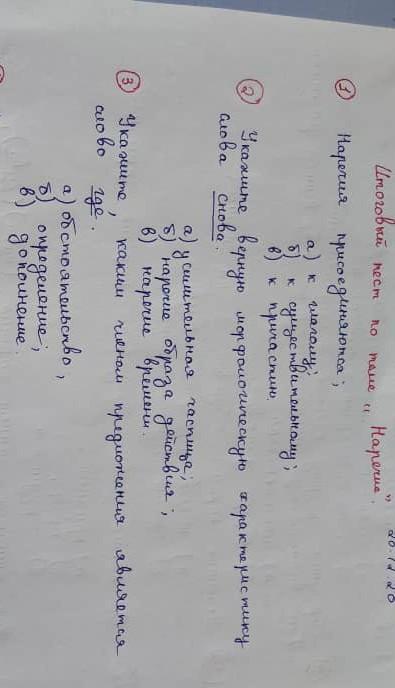 20.12.20
Итоговый тест по теме „Наречие”.
① Наречия присоединяются;
а) к глаголу;
б) к существительному;
в) к причастию.
② Укажите верную морфологическую характеристику
слова снова.
а) усилительная частица;
б) наречие образа действия;
в) наречие времени.
③ Укажите, каким членом предложения является
слово где.
а) обстоятельство,
б) определение;
в) дополнение.